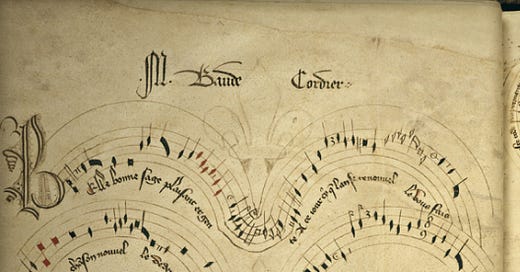 M. Baude Cordier
Belle bonne sage plaisant et gen te A ce iour cy q̃ lan se renouuel le vous fais
nouuel le Deden